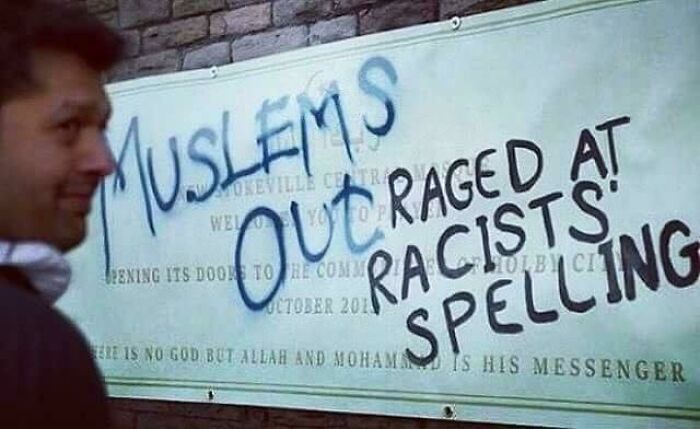 MUSLEMS
OUt RAGED AT
RACISTS'
SPELLING
STOKEVILLE CENTRAL MOSQUE
WELCOMES YOU TO PRAYER
OPENING ITS DOORS TO THE COMMUNITIES OF HOLBY CITY
OCTOBER
THERE IS NO GOD BUT ALLAH AND MOHAMMAD IS HIS MESSENGER